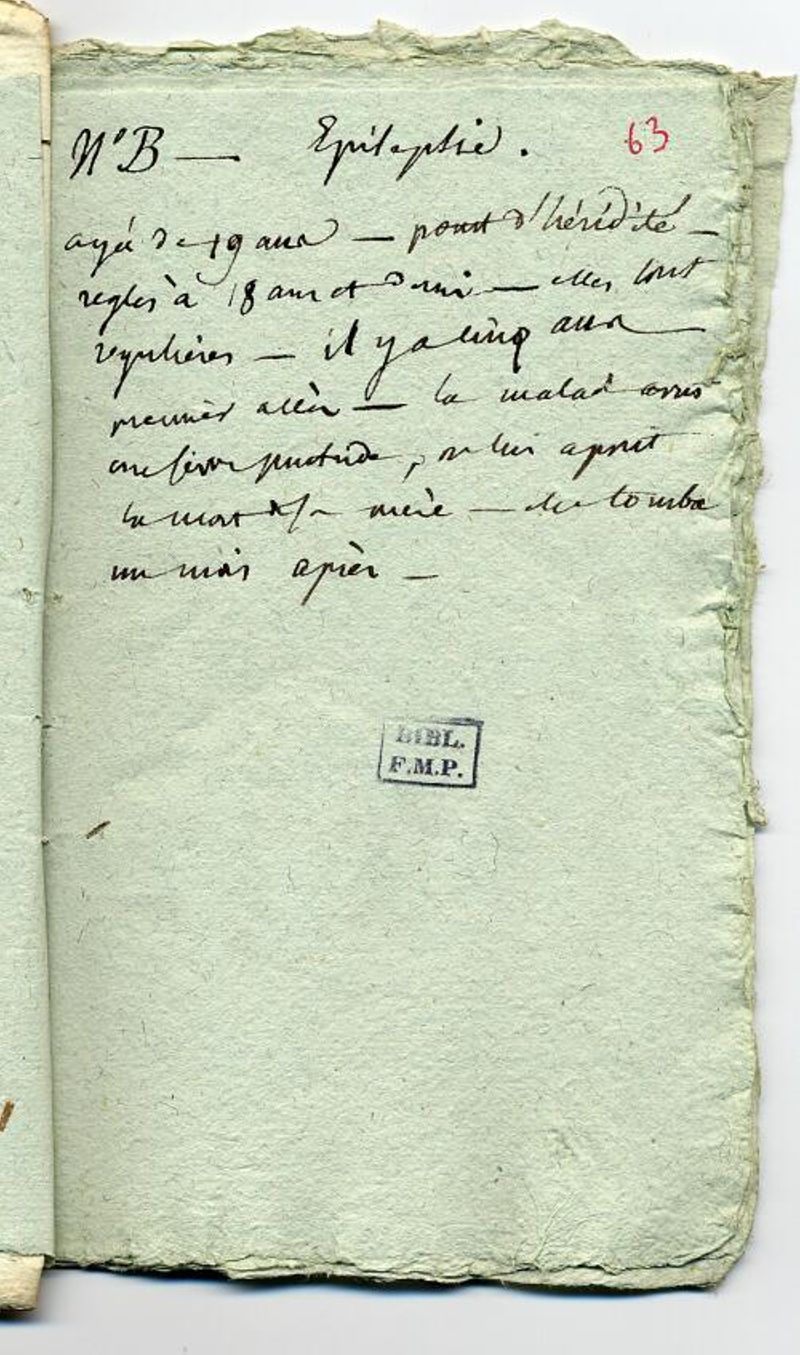 N°B — Epilepsie. 63
agée de 19 ans — point d'hérédité —
regles à 18 ans et demi — elles sont
regulières — il y a cinq ans
premier accès — la malade avait
une fièvre putride, on lui apprit
la mort de sa mère — elle tomba
un mois après —
BIBL.
F.M.P.